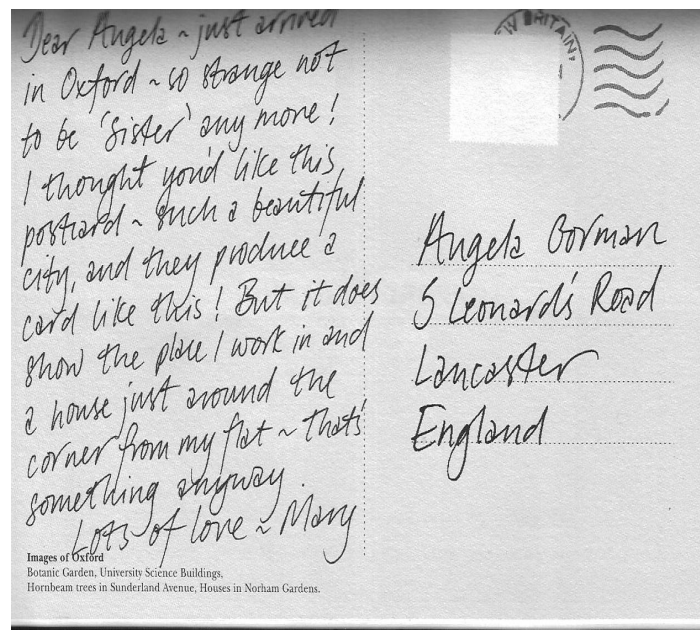 Dear Angela ~ just arrived
in Oxford ~ so strange not
to be 'Sister' any more!
I thought you'd like this
postcard ~ such a beautiful
city, and they produce a
card like this! But it does
show the place I work in and
a house just around the
corner from my flat ~ that's
something anyway.
Lots of love ~ Mary
Images of Oxford
Botanic Garden, University Science Buildings,
Hornbeam trees in Sunderland Avenue, Houses in Norham Gardens.
W BRITAIN
Angela Gorman
5 Leonard's Road
Lancaster
England